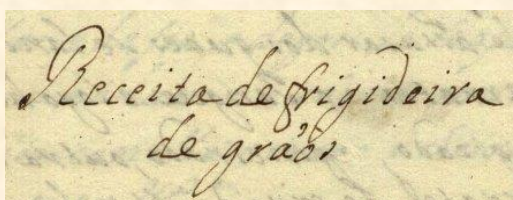 Receita de frigideira
de gráos